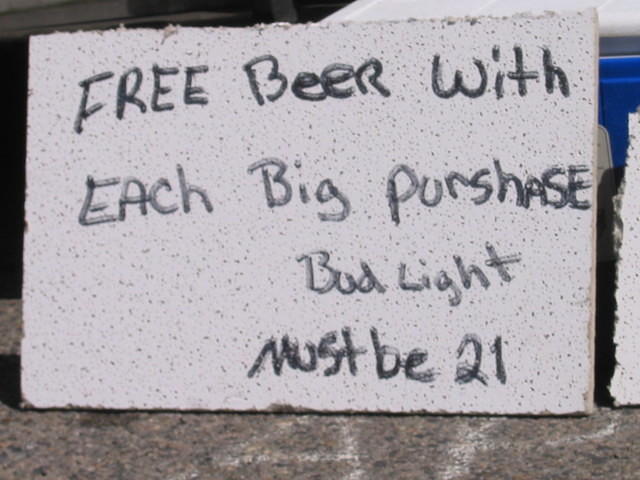 FREE BEER With
EACh Big purshASE
Bud Light
Must be 21